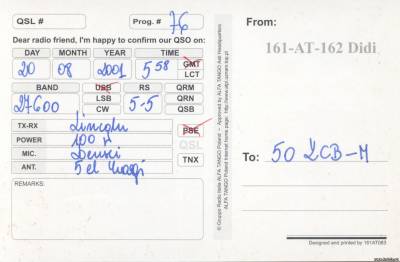 QSL #
Prog. # 76
Dear radio friend, I'm happy to confirm our QSO on:
DAY MONTH YEAR TIME
20 08 2001 5 58 GMT
LCT
BAND USB RS QRM
27600 LSB 5-5 QRN
CW QSB
TX-RX Lincoln
POWER 100 W
MIC.
ANT. 5 el Yagi
PSE
QSL
TNX
REMARKS:
© Gruppo Radio Italia ALFA TANGO Poland - Approved by ALFA TANGO Asti Headquarters
From:
161-AT-162 Didi
To: 50 LCB-M
Designed and printed by 161AT083